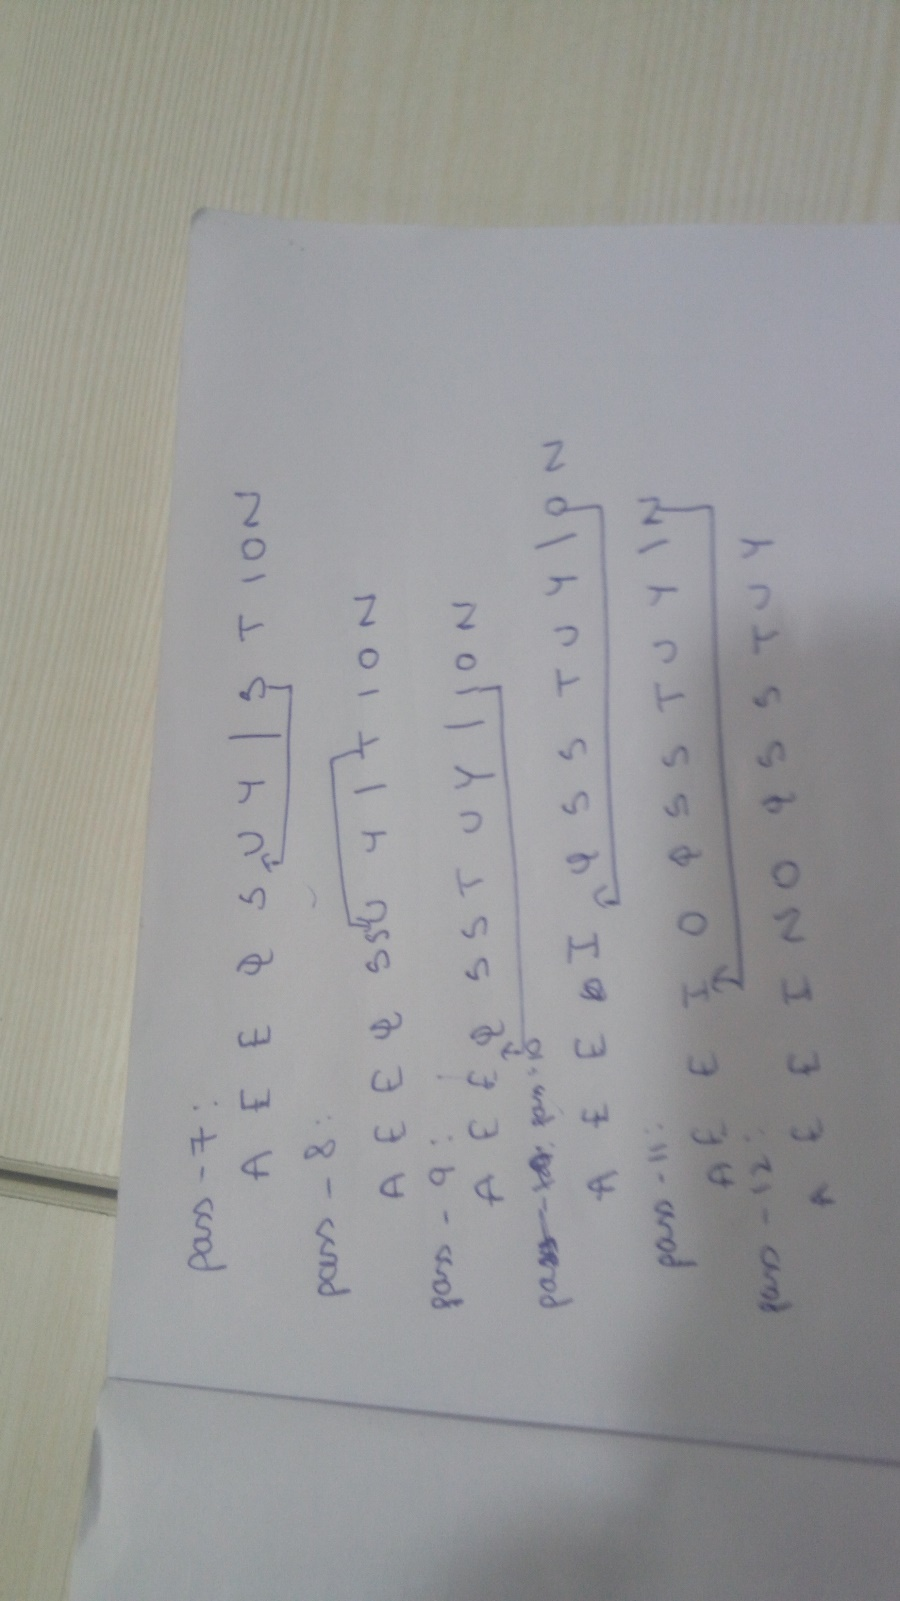 pass - 7:
A E E Q S U Y | S T I O N
pass - 8:
A E E Q S S U Y | T I O N
pass - 9:
A E E Q S S T U Y | I O N
pass-10
A E E I Q S S T U Y | O N
pass - 11:
A E E I O Q S S T U Y | N
pass - 12:
A E E I N O Q S S T U Y